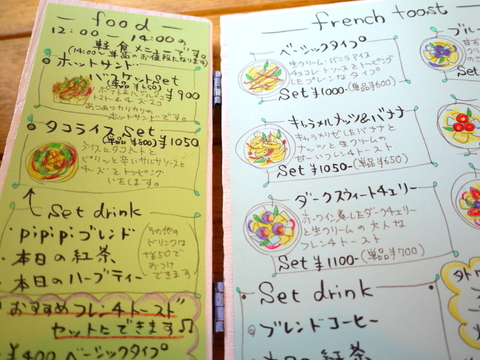 food
12:00 ― 14:00の
軽食メニューです。
ホットサンド
バスケットset
(単品¥650) ¥900
ホットサンドです。
タコライスset
(単品¥800) ¥1050
ピリッと辛いサルサソースと
チーズをトッピング
いたします。
Set drink
pipipiブレンド
本日の紅茶
本日のハーブティー
その他の
ドリンクは
できます
おすすめフレンチトースト
セットにできます♫
¥400 ベーシックタイプ
french toast
ベーシックタイプ
生クリーム・バニラアイス
チョコレートソースをトッピング
Set ¥1000- (単品¥600)
キャラメルナッツ&バナナ
キャラメリゼしたバナナと
ナッツと生クリームの
甘〜いフレンチトースト
Set ¥1050- (単品¥650)
ダークスウィートチェリー
赤ワイン煮したダークチェリー
と生クリームの大人な
フレンチトースト
Set ¥1100- (単品¥700)
Set drink
ブレンドコーヒー
本日の紅茶
ブルー